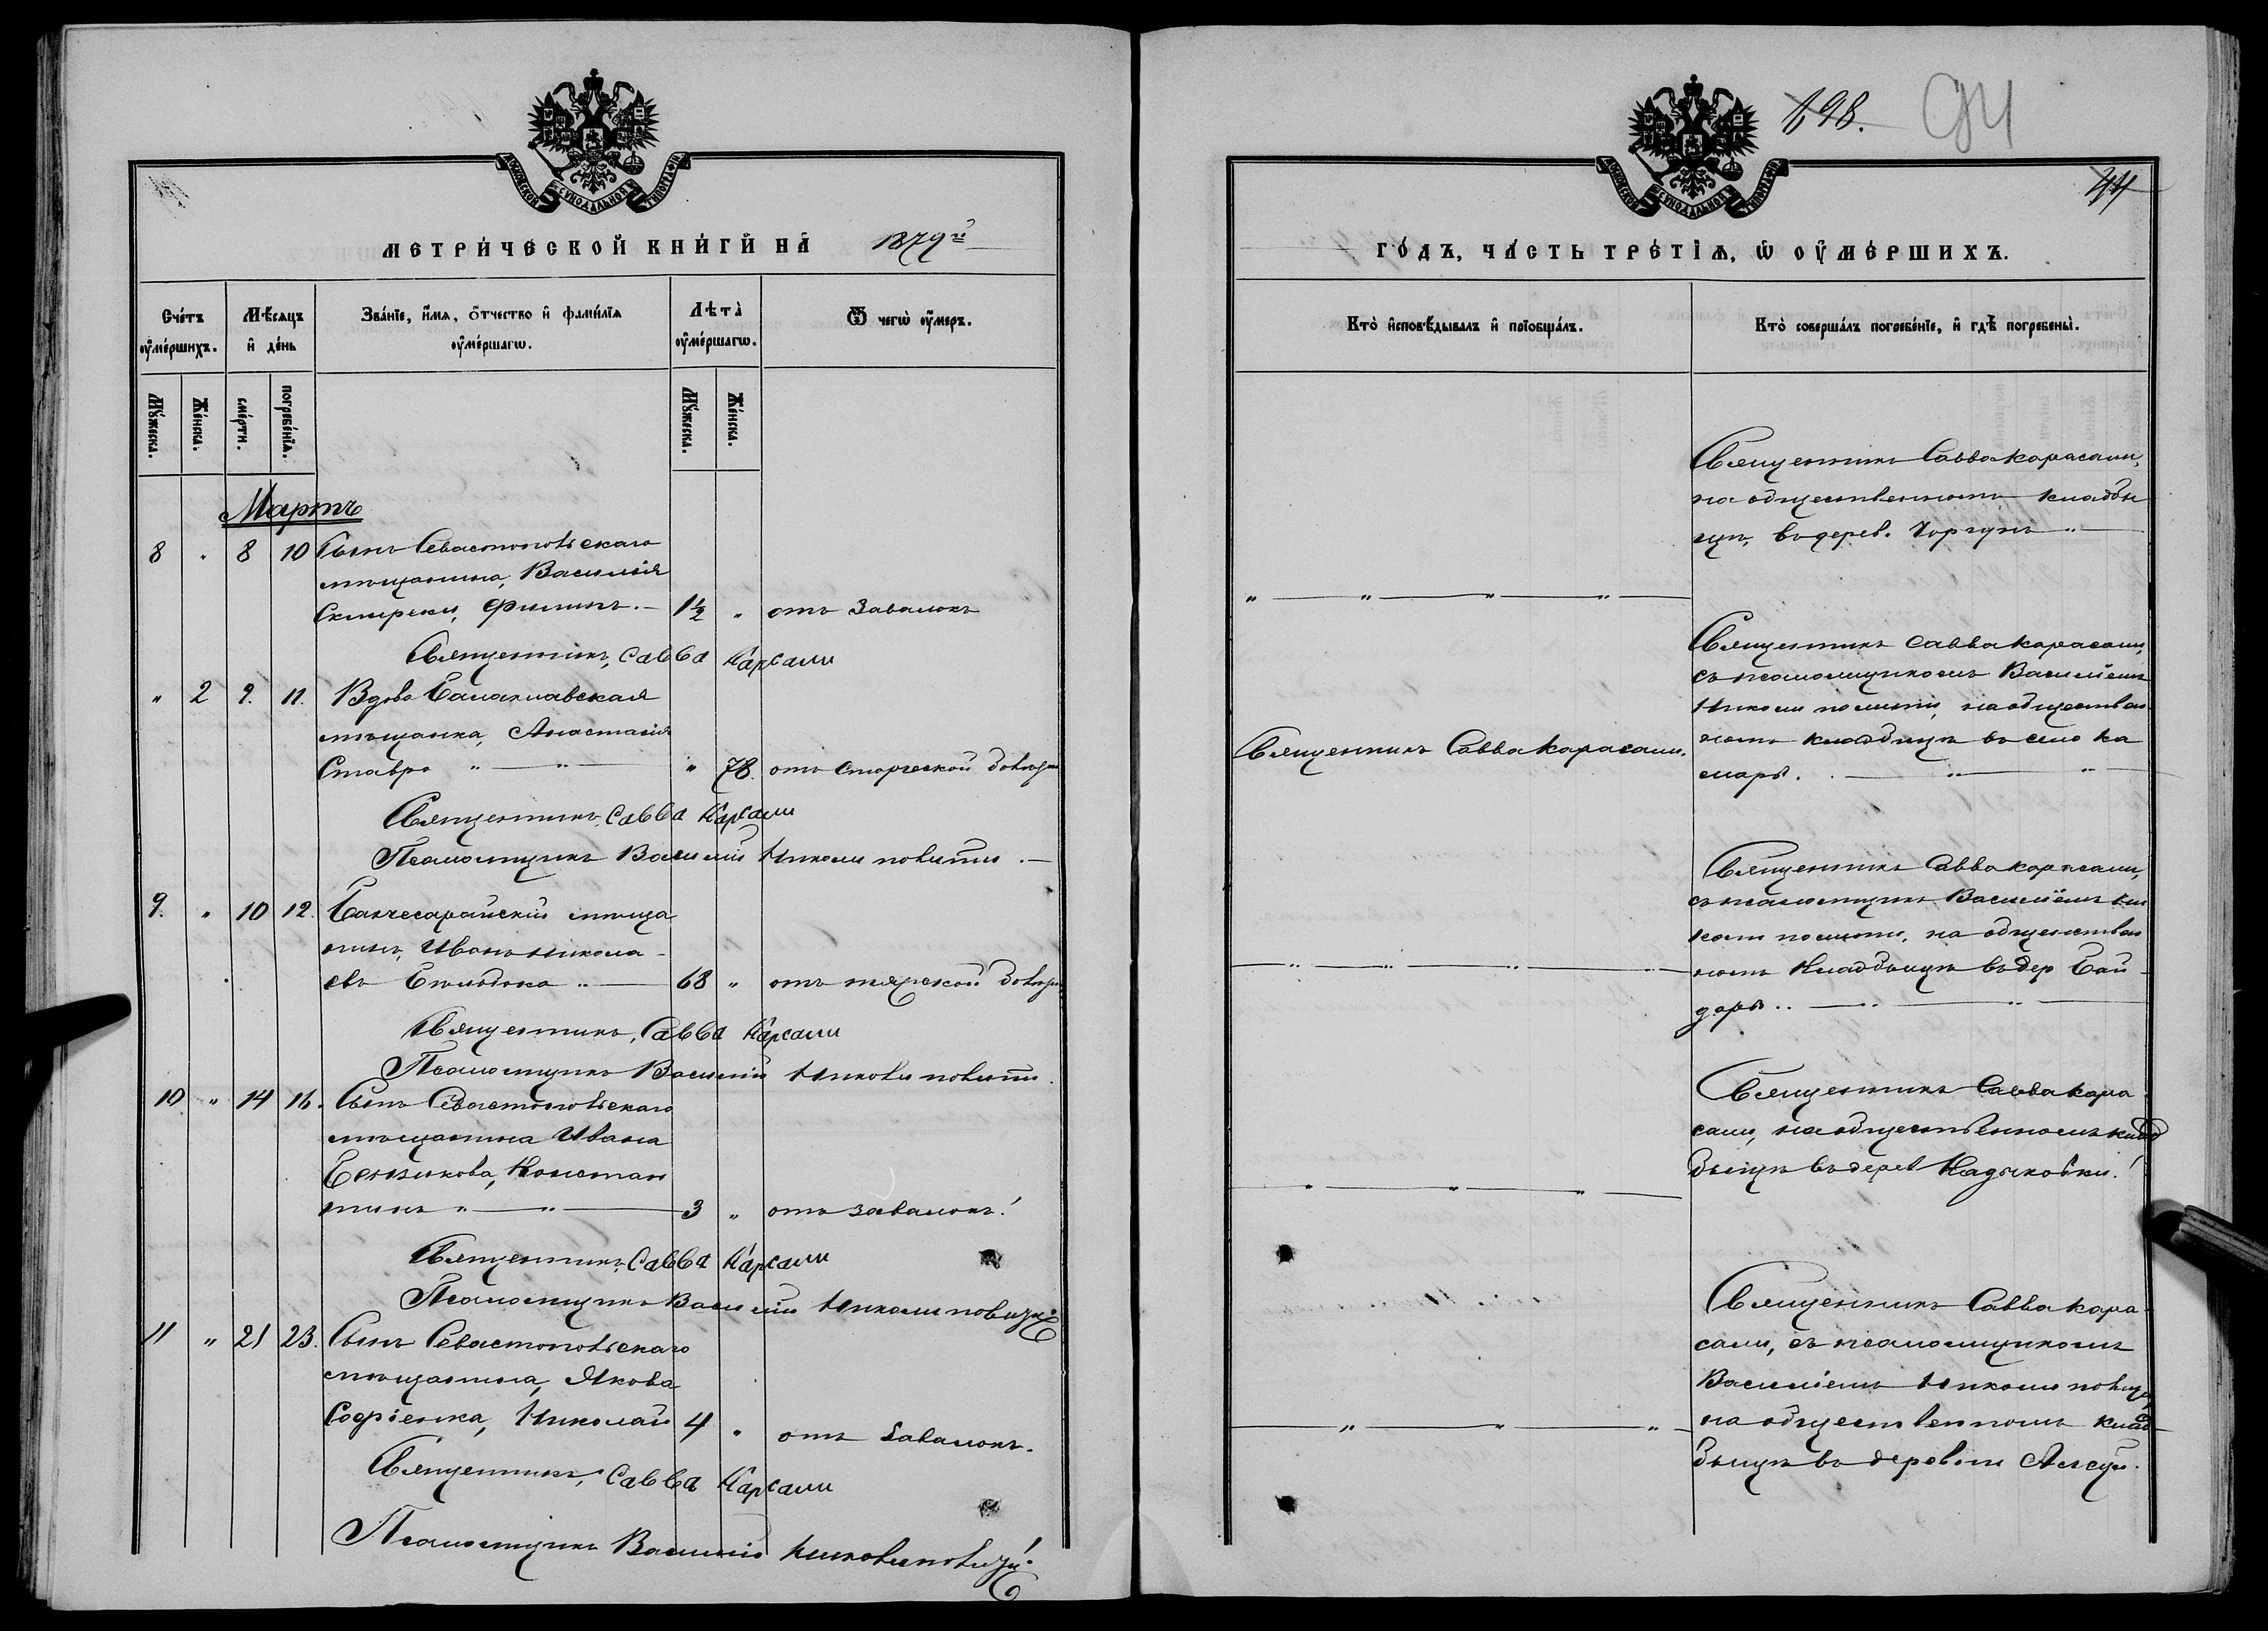 МОСКОВСКОЙ СѴНОДАЛЬНОЙ ТИПОГРАФІИ
МЕТРИ́ЧЕСКОЙ КНИ́ГИ НА 1879й
Сче́тъ оумершихъ.
Мѣсяцъ и де́нь
Зва́нїе, и́мя, о́тчество и фами́лїя оуме́ршагѡ.
Лѣта̀ оуме́ршагѡ.
Ѿ чегѡ̀ оумеръ.
Мꙋжеска.
Же́нска.
сме́рти.
погребе́нїя.
Мꙋжеска.
Же́нска.
Мартъ
8 " 8 10 Сынъ Севастопольскаго
мѣщанина, Василія
Скирески, Филипъ. — 1½ " отъ завалокъ
Священникъ, Савва Карсали
" 2 9. 11. Вдова Балаклавская
мѣщанка, Анастасія
Ставро " — " " 78. отъ старческой
Священникъ, Савва Карсали
Псаломщикъ Василій
9. " 10 12. Бахчесарайскій мѣща
нинъ, Иванъ Никола
евъ 68 " отъ
Священникъ, Савва Карсали
Псаломщикъ Василій
10 " 14 16. Сынъ Севастопольскаго
мѣщанина Ивана
Константинъ " — " — 3 " отъ завалокъ!
Священникъ, Савва Карсали
Псаломщикъ Василій
11 " 21 23. Сынъ Севастопольскаго
мѣщанина, Якова
Софіенка, Николай 4 " отъ завалокъ.
Священникъ, Савва Карсали
Псаломщикъ Василій
198. 94
44
МОСКОВСКОЙ СѴНОДАЛЬНОЙ ТИПОГРАФІИ
ГО́ДЪ, ЧА́СТЬ ТРЕ́ТЇѦ, Ѡ ОУМЕ́РШИХЪ.
Кто̀ исповѣ́дывалъ и прїобща́лъ.
Кто̀ соверша́лъ погребе́нїе, и гдѣ̀ погребены̀.
Священникъ Савва Карасали,
на общественномъ кладби
щѣ, въ дерев. Чоргунъ "
" — " — " — " —
Священникъ Савва Карасали,
съ псаломщикомъ Василіемъ
на обществен
номъ кладбищѣ въ село Ка
мары. — " — "
Священникъ Савва Карасали.
Священникъ Савва Карасали,
съ псаломщикъ Василіемъ
на обществен
номъ кладбищѣ въ дер Бай
дары .. — " — "
— " — " — " — "
Священникъ Савва Кара
сали, на общественномъ клад
бищѣ въ дерев Кадыковки!
— " — " — " —
Священникъ Савва Кара
сали, съ псаломщикомъ
Василіемъ
на общественномъ клад
бищѣ въ деревни Алсу.
— " — " — "